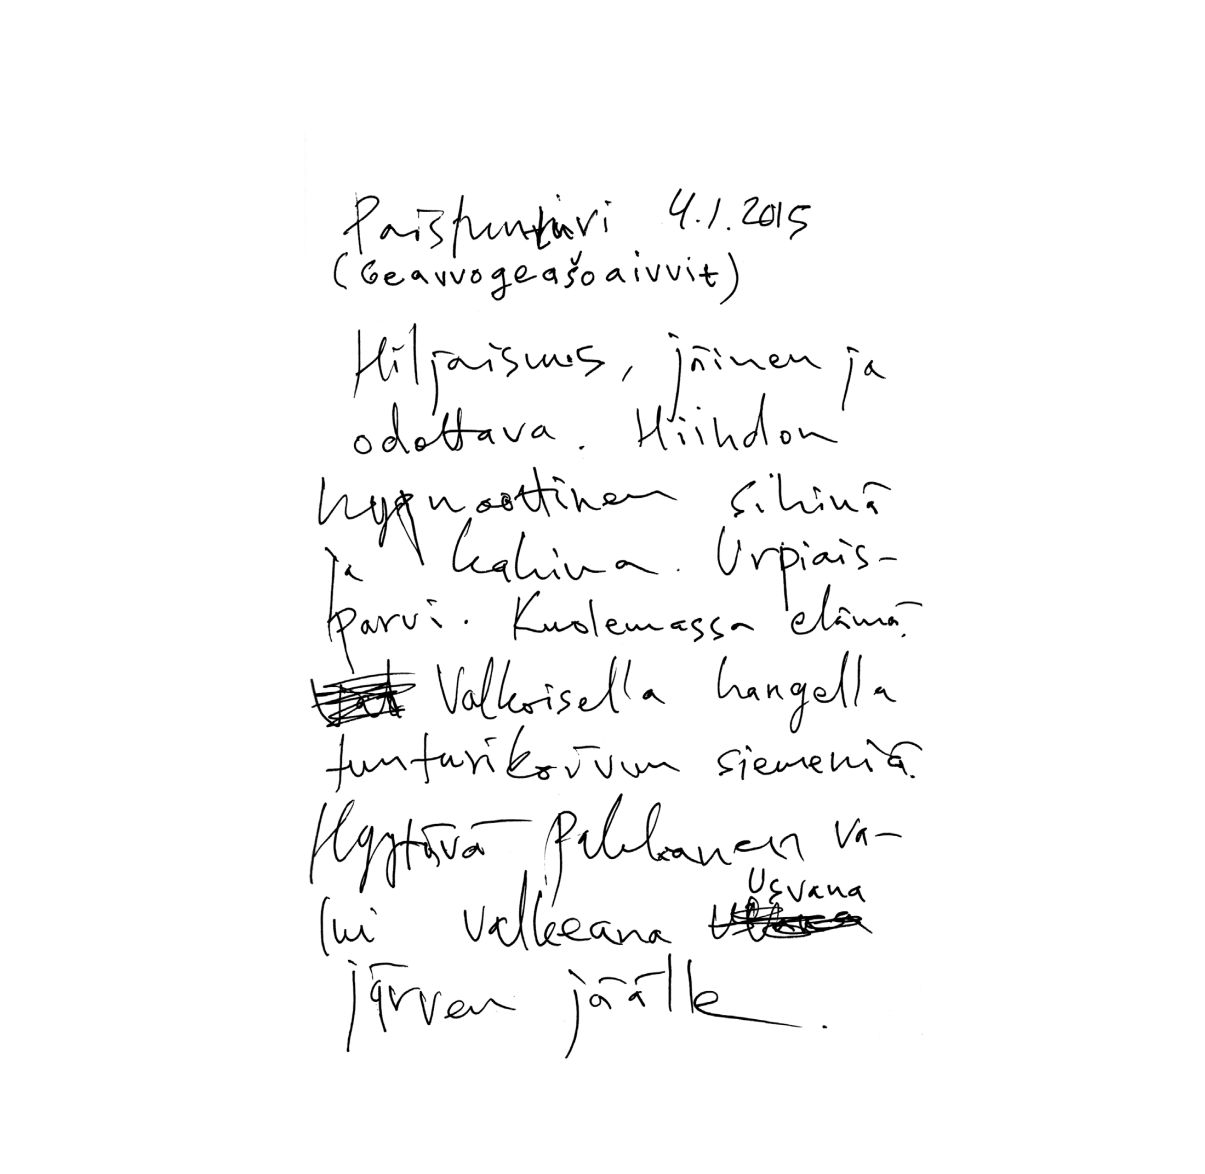 Paistunturi 4.1.2015
(Geavvogeašoaivvit)
Hiljaisuus, jäinen ja
odottava. Hiihdon
hypnoottinen sihinä
ja kahina. Urpiais-
parvi. Kuolemassa elämä.
Valkoisella hangella
tunturikoivun siemeniä.
Hyytävä pakkanen va-
lui valkeana usvana
järven jäälle.